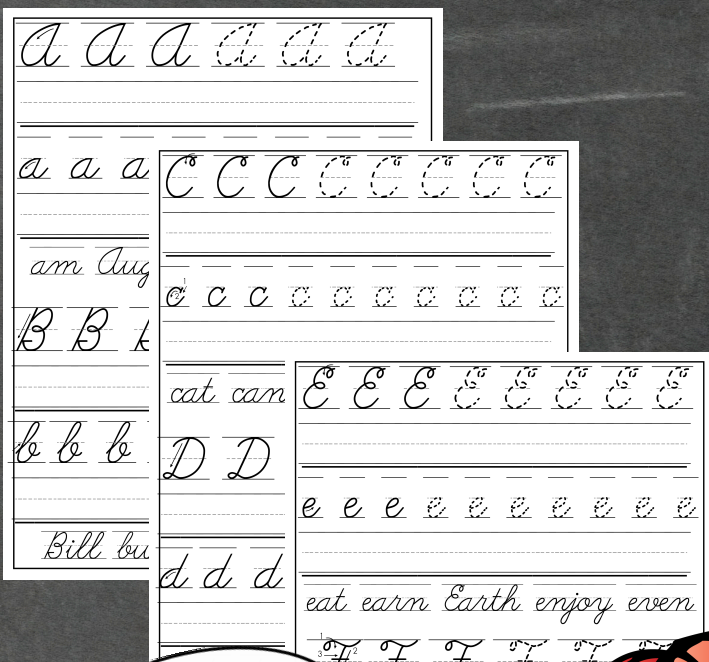 A A A A A A
a a a
am Aug
B B
b b b
Bill bu
C C C C C C C C
c c c c c c c c c c
cat can
D D
d d d
E E E E E E E E
e e e e e e e e e e
eat earn Earth enjoy even
F F F F F F